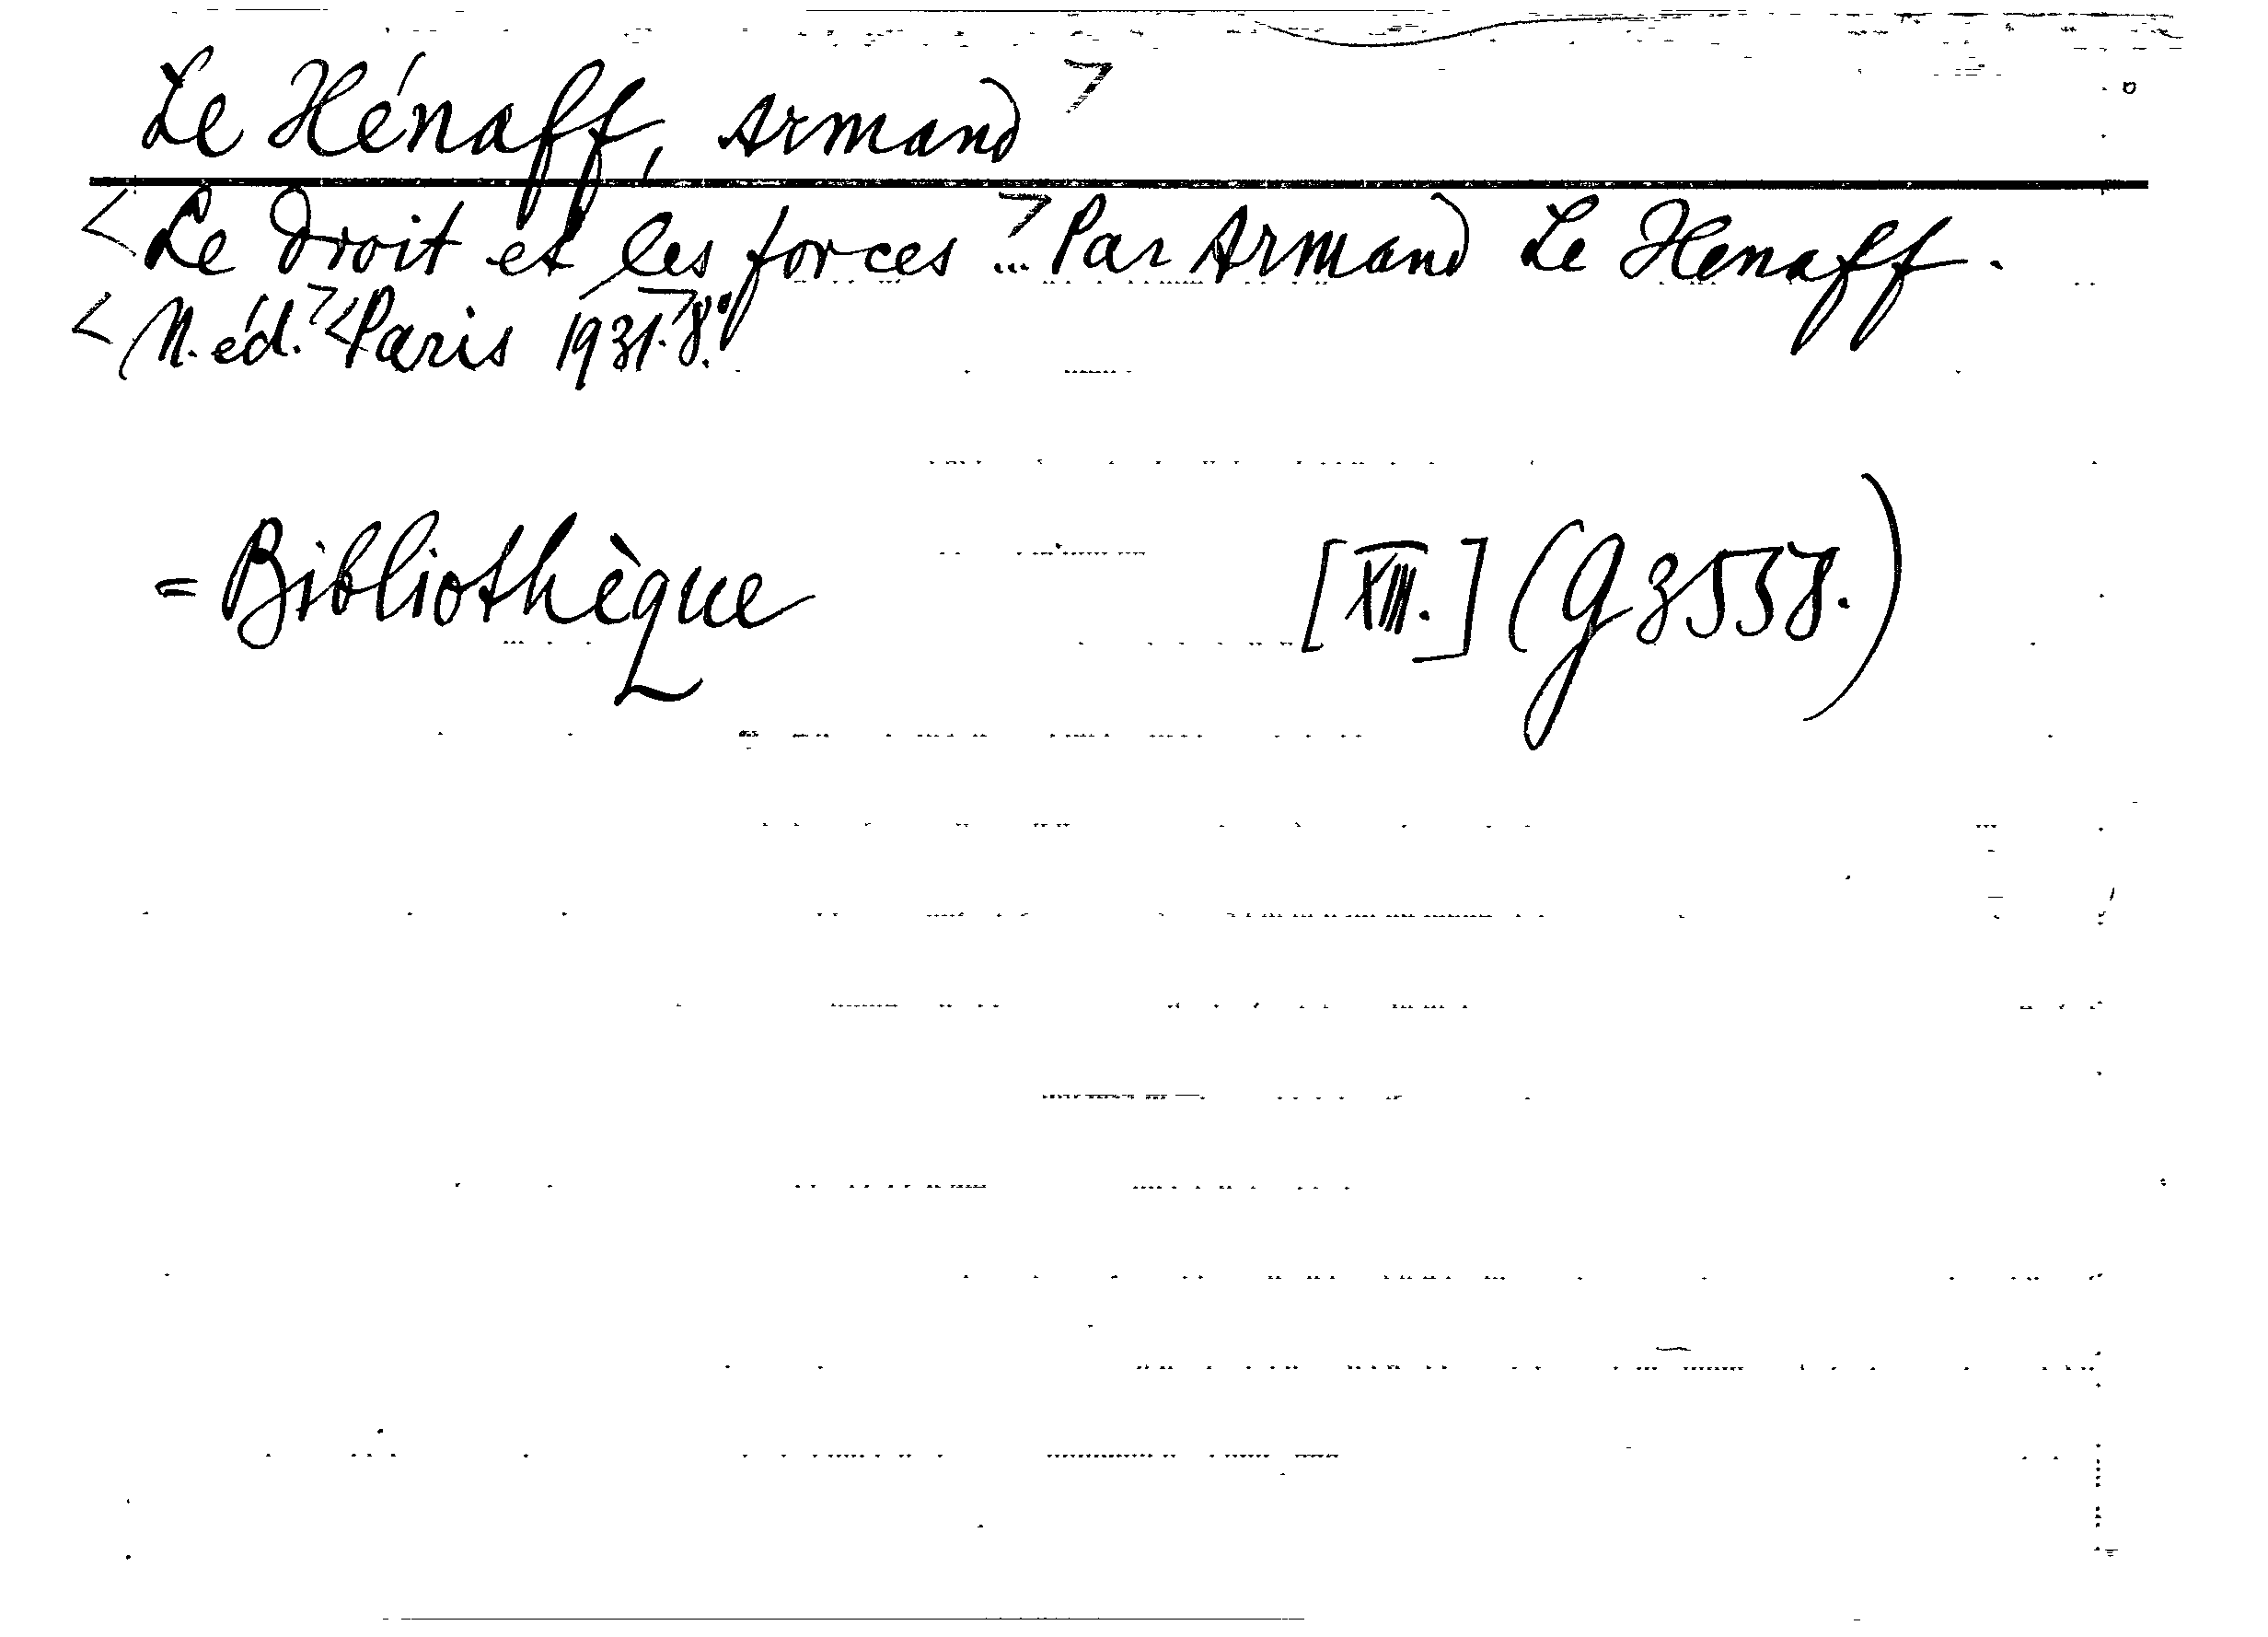 Le Hénaff, Armand>
<Le droit et les forces ...> Par Armand Le Henaff.
<N. éd.> <Paris 1931.> 8°.
= Bibliothèque [XIII.] (G 3558.)